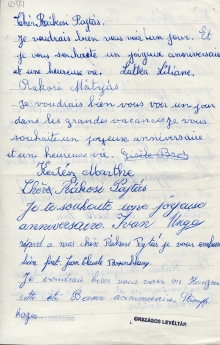 Chère Rákosi Pajtás.
Je voudrais bien vous voir un jour. Et
je vous souhaite un joyeux anniversaire
et une heureuse vie. Liliane.
Rakosi Matyás
Je voudrais bien vous voir un jour
dans les grandes vacances je vous
souhaite un joyeuse anniversaire
et un heureuse vie. Gisèle
Kertész Marthe
Chère Rákosi Pajtás
Je te souhaite une joyeuse
anniversaire. Ivan
chér Rákosi Pajtás je vous embrasse
bien fort. Jean Claude
Je voudrais bien vous voir en Hongrie
cette été. Bonne anniversaire.
ORSZÁGOS LEVÉLTÁR